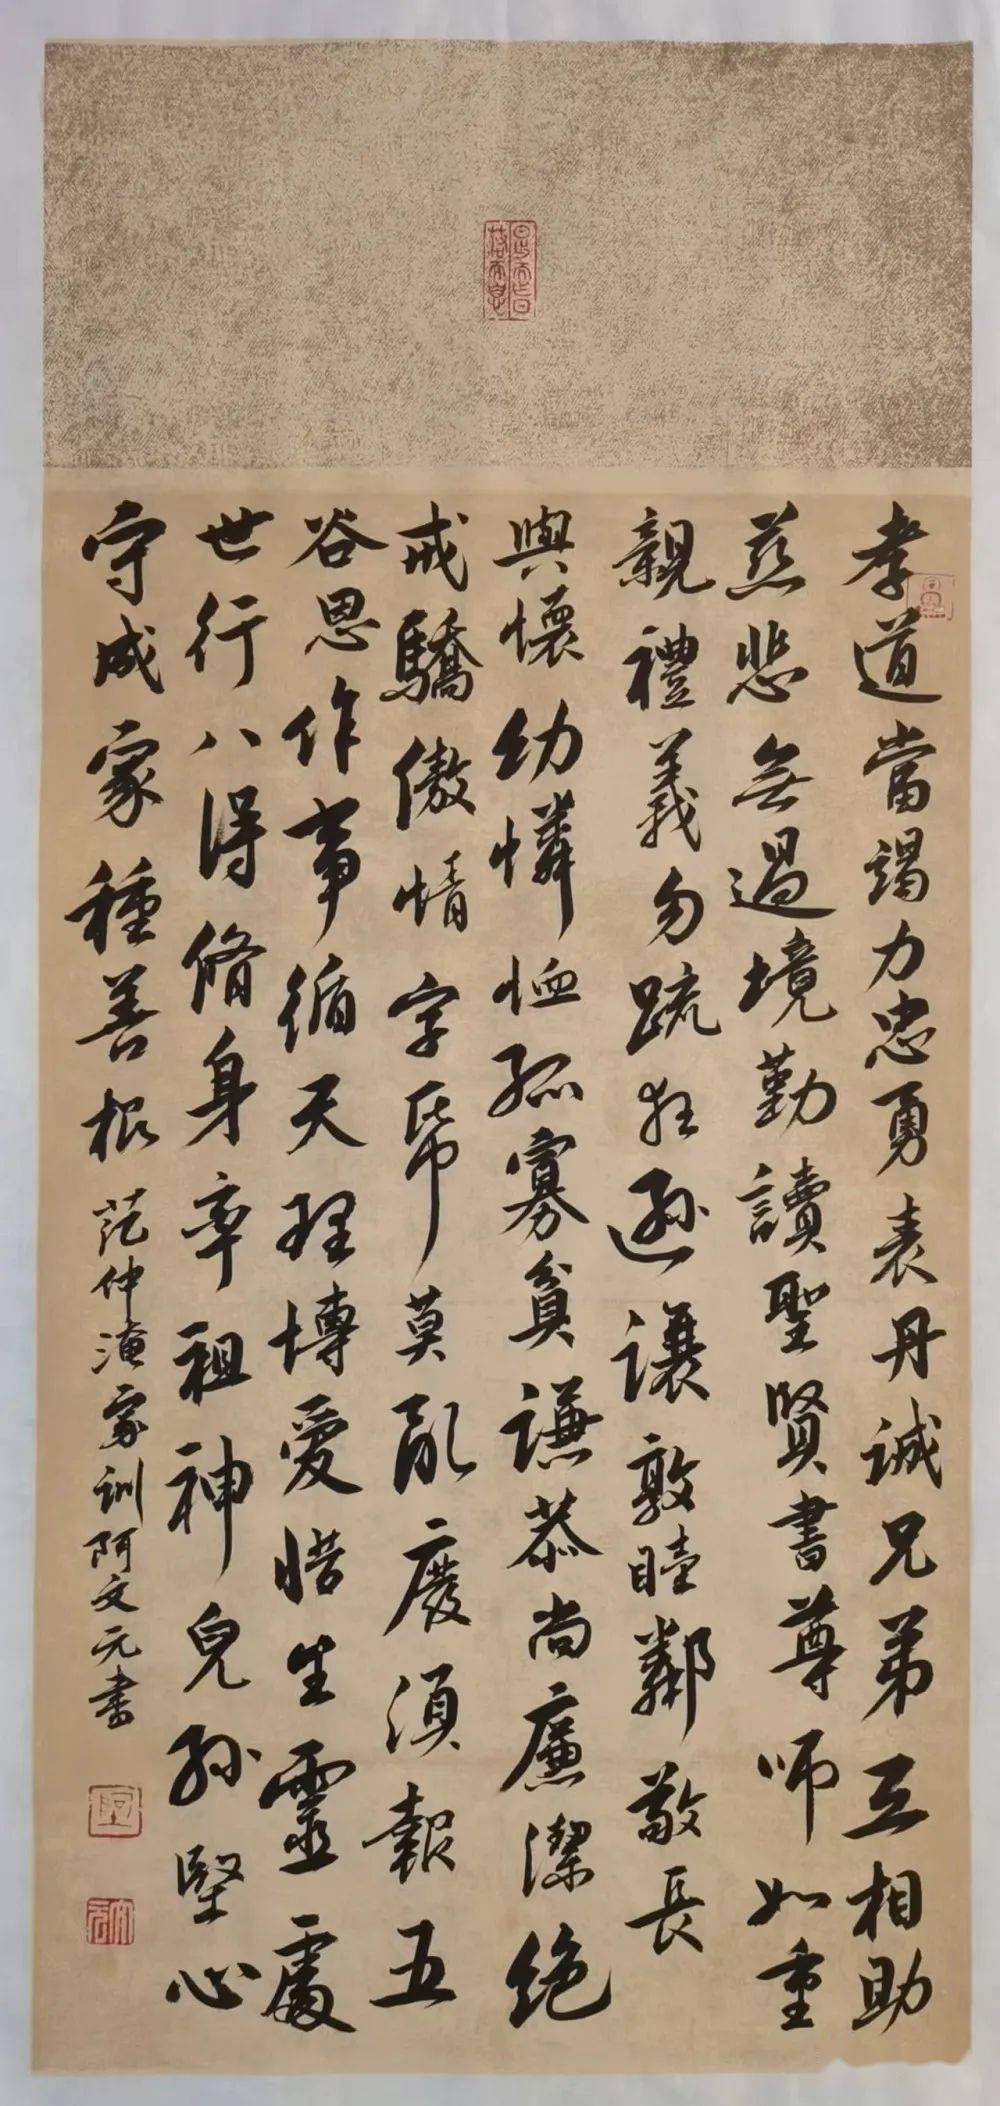 孝道當竭力忠勇表丹誠兄弟互相助
慈悲無過境勤讀聖賢書尊師如重
親禮義勿疏狂遜讓敦睦鄰敬長
與懷幼憐恤孤寡貧謙恭尚廉潔絕
戒驕傲情字帋莫亂廢須報五
谷恩作事循天理博愛惜生靈處
世行八得脩身率祖神兒孫堅心
守成家種善根
范仲淹家訓阿文元書